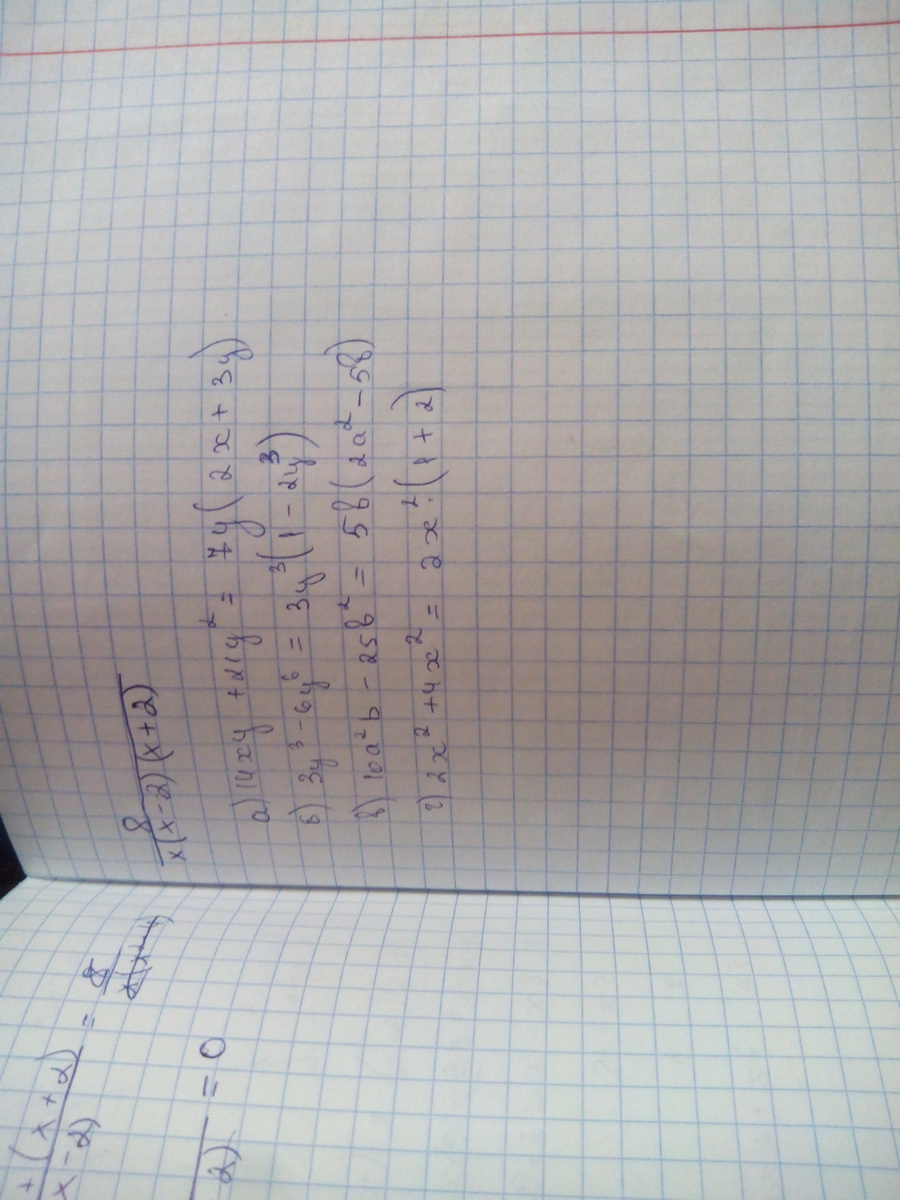 +(x+2)
x-2)
=
8
2)
= 0
8
x(x-2)(x+2)
а) 14xy + 21y² = 7y(2x + 3y)
б) 3y³ - 6y⁶ = 3y³(1 - 2y³)
в) 10a²b - 25b² = 5b(2a² - 5b)
г) 2x² + 4x² = 2x²·(1 + 2)